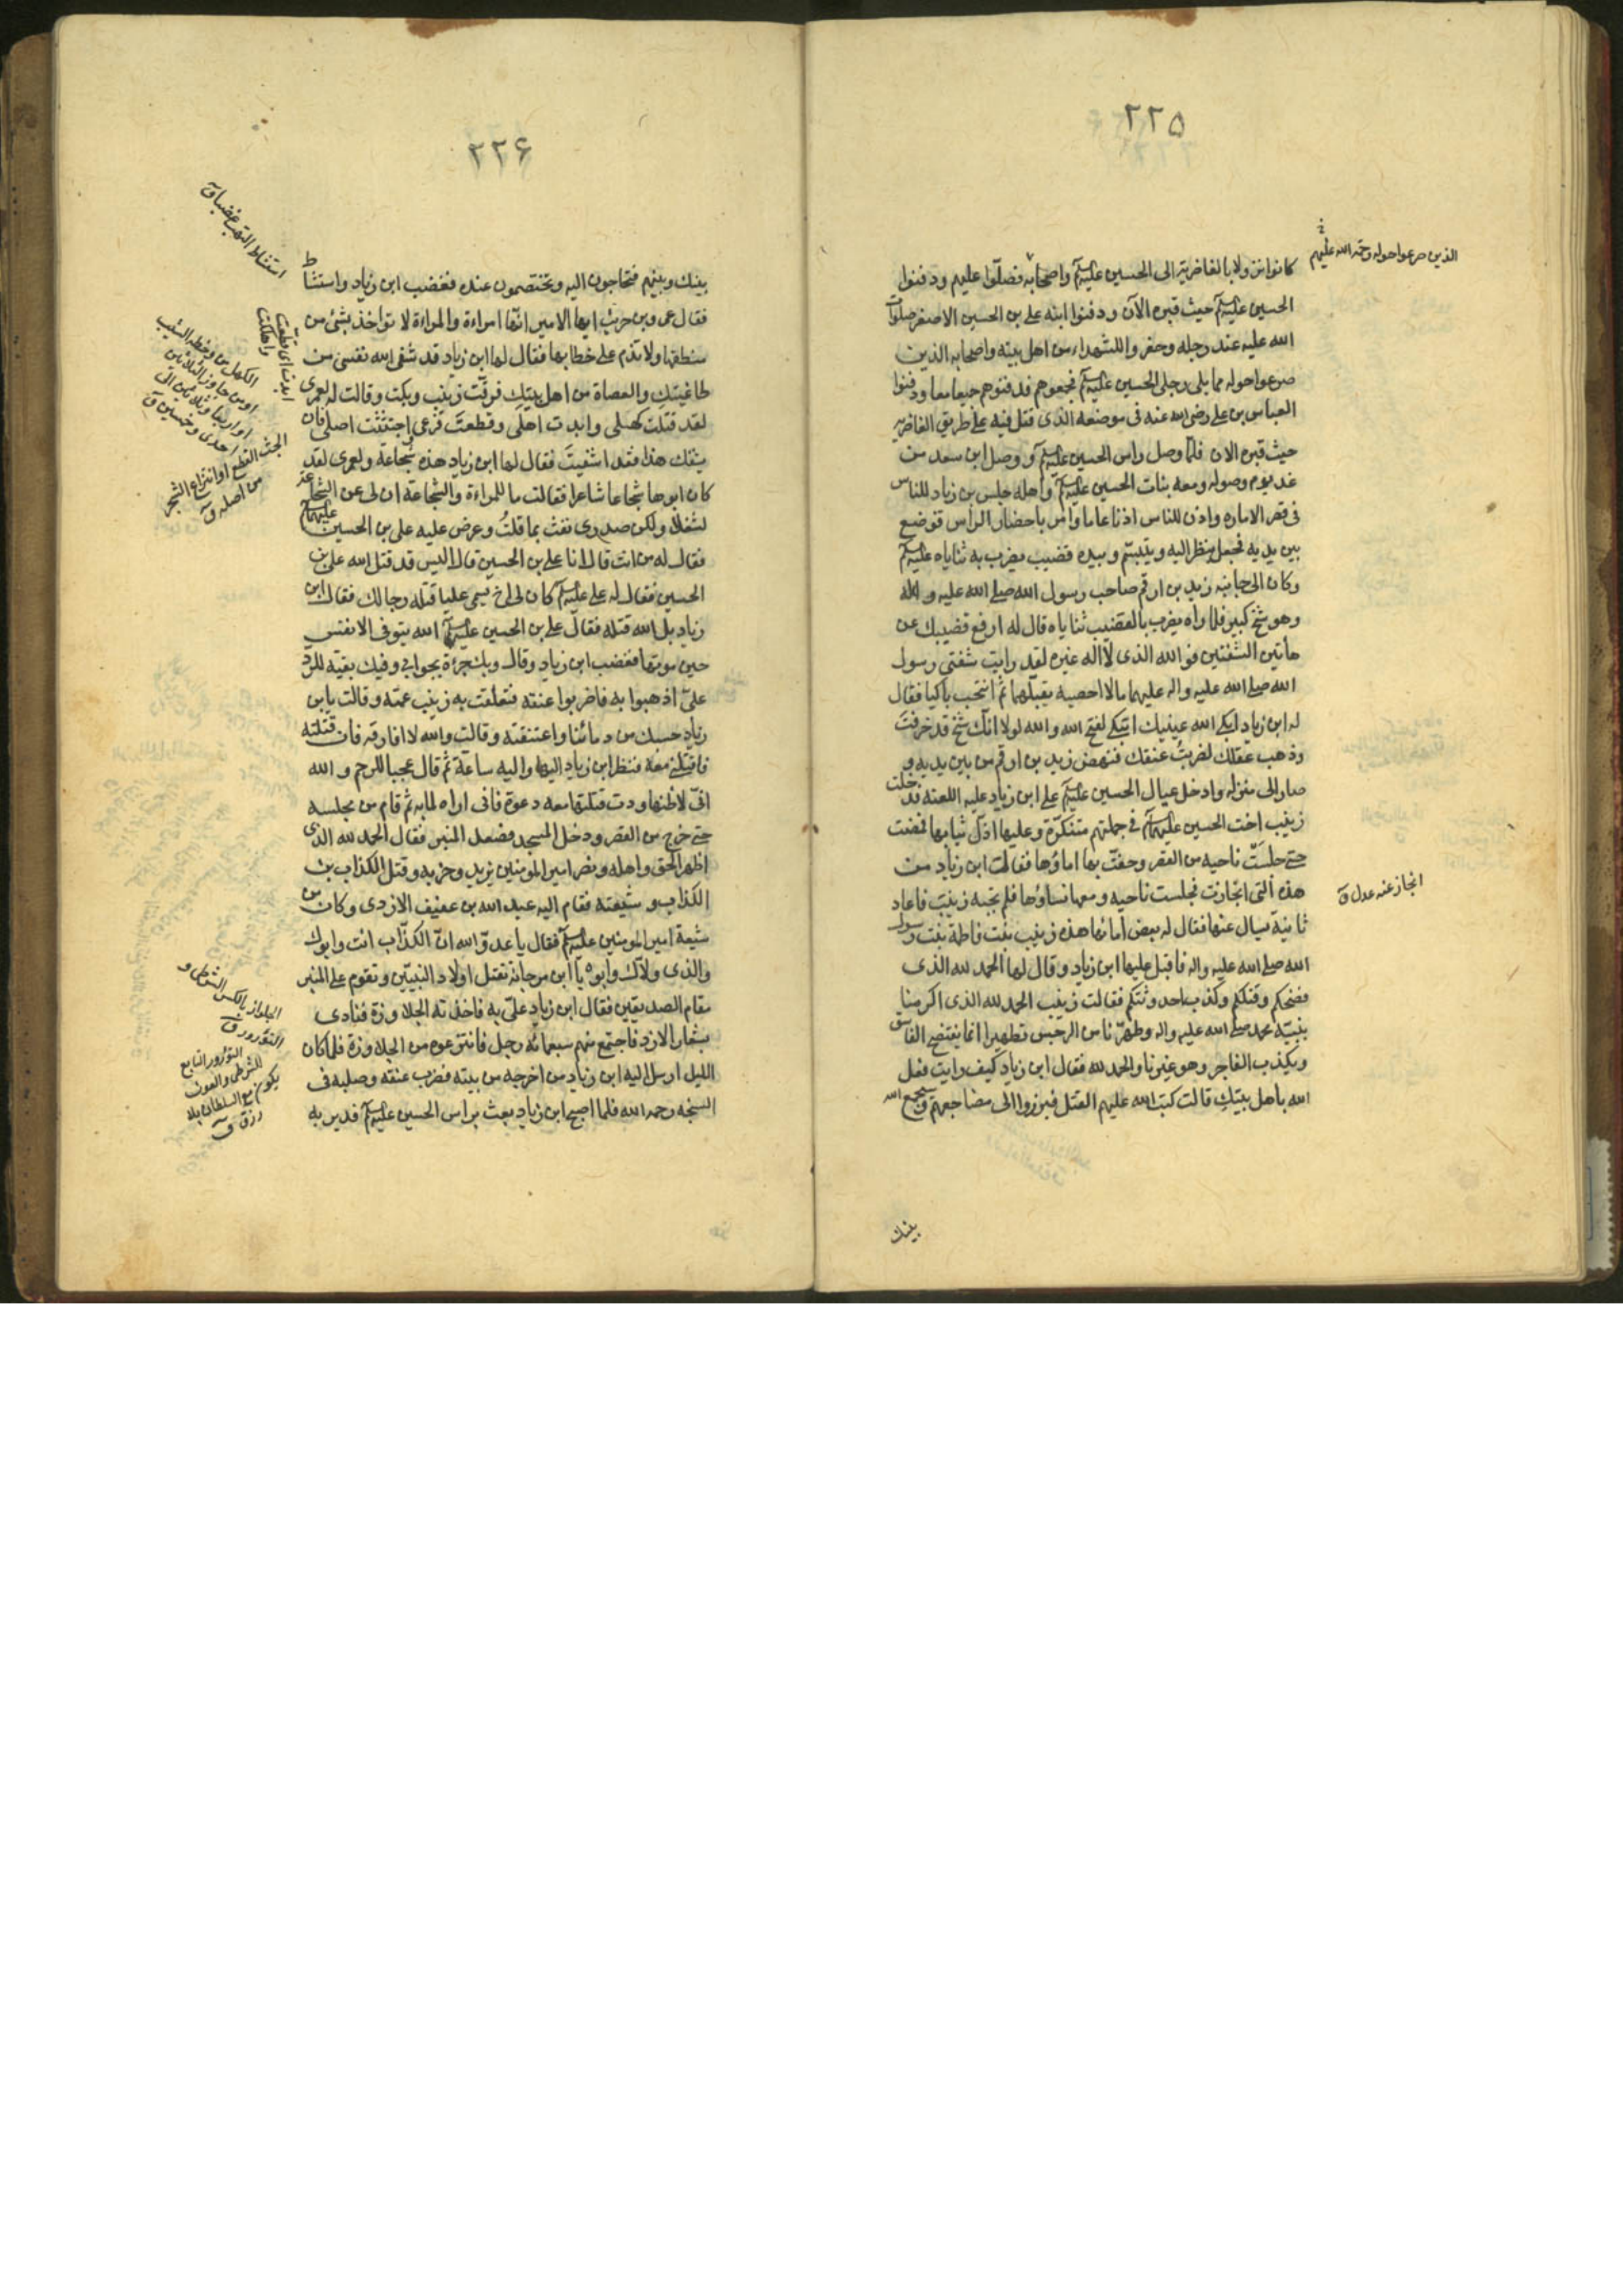 ٢٢٥
الذين صرعوا حوله رحمة الله عليهم
كانوا نزولا بالغاضرية الى الحسين عليه السلم واصحابه فصلّوا عليهم ودفنوا
الحسين عليه السلم حيث قبره الآن ودفنوا ابنه على بن الحسين الاصغر صلوات
الله عليه عند رجله وحفروا للشهداء من اهل بيته واصحابه الذين
صرعوا حوله مما يلى رجلى الحسين عليه السلم فجمعوهم فدفنوهم جميعا معا ودفنوا
العباس بن على رضى الله عنه فى موضعه الذى قتل فيه على طريق الغاضريه
حيث قبره الان فلمّا وصل راس الحسين عليه السلم و وصل ابن سعد من
غد يوم وصوله ومعه بنات الحسين عليه السلم واهله جلس بن زياد للناس
فى قصر الاماره واذن للناس اذنا عاما وامر باحضار الراس فوضع
بين يديه فجعل ينظر اليه ويتبسّم وبيده قضيب يضرب به ثناياه عليه السلم
وكان الى جانبه زيد بن ارقم صاحب رسول الله صلى الله عليه واله
وهو شيخ كبير فلما راه يضرب بالقضيب ثناياه قال له ارفع قضيبك عن
هاتين الشفتين فو الله الذى لا اله غيره لقد رايت شفتى رسول
الله صلى الله عليه واله عليهما مالا احصيه يقبّلهما ثم انتحب باكيا فقال
له ابن زياد ابكى الله عينيك اتبكى لفتح الله والله لولا انّك شيخ قد خرفت
وذهب عقلك لضربتُ عنقك فنهض زيد بن ارقم من بين يديه و
صار الى منزله وادخل عيال الحسين عليه السلم على ابن زياد عليه اللعنه فدخلت
زينب اخت الحسين عليهما السلم فى جملتهم متنكّرة وعليها ارذل ثيابها فمضت
حتى جلسَتْ ناحيه من القصر وحفّت بها اماؤها فقال ابن زياد من
هذه التى انحازت فجلست ناحيه ومعها نساؤها فلم تجبه زينب فاعاد
انحاز عنه عدل ق
ثانيةً يسال عنها فقال له بعض امائها هذه زينب بنت فاطمة بنت رسول
الله صلى الله عليه واله فاقبل عليها ابن زياد وقال لها الحمد لله الذى
فضحكم وقتلكم وكذب احدوثتكم فقالت زينب الحمد لله الذى اكرمنا
بنبيّه محمد صلى الله عليه واله وطهّرنا من الرجس تطهيرا انما يفتضح الفاسق
ويكذب الفاجر وهو غيرنا والحمد لله فقال ابن زياد كيف رايت فعل
الله باهل بيتكِ قالت كتب الله عليهم القتل فبرزوا الى مضاجعهم وسيجمع الله
بينك
٢٢۶
استشاط التهب غضبا ق
بينك وبينهم فتحاجون اليه وتختصمون عنده فغضب ابن زياد واستشاط
فقال عمرو بن حريث ايها الامير انّها امراءة والمراءة لا تواخذ بشئ من
منطقها ولا تذم على خطابها فقال لها ابن زياد قد شفى الله نفسى من
طاغيتكِ والعصاة من اهل بيتكِ فرقّت زينب وبكت وقالت له لعمرى
لقد قتلت كهلى وابدت اهلى وقطعتَ فرعى واجتثثت اصلى فان
يشفك هذا فقد اشتفيتَ فقال لها ابن زياد هذه شجاعة ولعمرى لقد
كان ابوها شجاعا شاعرا فقالت ما للمراءة والشجاعة ان لى عن الشجاعة
لشغلا ولكن صدرى نفث بما قلتُ وعرض عليه على بن الحسين عليهما السلم
فقال له من انت قال انا على بن الحسين قال اليس قد قتل الله على بن
الحسين فقال له على عليه السلم كان لى اخ يسمى عليا قتله رجالك فقال ابن
زياد بل الله قتله فقال على بن الحسين عليهما السلم الله يتوفى الانفس
حين موتها فغضب ابن زياد وقال وبك جرءة بجوابى وفيك بقية للرد
علىّ اذهبوا به فاضربوا عنقه فتعلقت به زينب عمته وقالت يابن
زياد حسبك من دمائنا واعتنقته وقالت والله لا افارقه فان قتلته
فاقتلنى معه فنظر ابن زياد اليها واليه ساعة ثم قال عجبا للرحم والله
انّى لاظنها ودت قتلتها معه دعوه فانى اراه لمابه ثم قام من مجلسه
حتى خرج من القصر ودخل المسجد فصعد المنبر فقال الحمد لله الذى
اظهر الحق واهله ونصر امير المومنين يزيد وحزبه وقتل الكذاب بن
الكذاب وشيعته فقام اليه عبد الله بن عفيف الازدى وكان من
شيعة امير المومنين عليه السلم فقال يا عدوّ الله انّ الكذّاب انت وابوك
والذى ولّاك وابوه يا ابن مرجانة تقتل اولاد النبيّين وتقوم على المنبر
مقام الصديقين فقال ابن زياد علىّ به فاخذته الجلاوزة فنادى
بشعار الازد فاجتمع منهم سبعمائة رجل فانتزعوه من الجلاوزة فلما كان
الليل ارسل اليه ابن زياد من اخرجه من بيته فضرب عنقه وصلبه فى
السبخه رحمه الله فلما اصبح ابن زياد بعث براس الحسين عليه السلم فدير به
ابدت اى قطعت واهلكت
الكهل من وخطه الشيب
او من جاوز الثلاثين
او اربعا وثلاثين الى
احدى وخمسين ق
الجث القطع او انتزاع الشجر
من اصله ق
الجلواز بالكسر الشرطى و
الثؤرور ق
التؤرور التابع
للشرطى والعون
يكون مع السلطان بلا
رزق ق